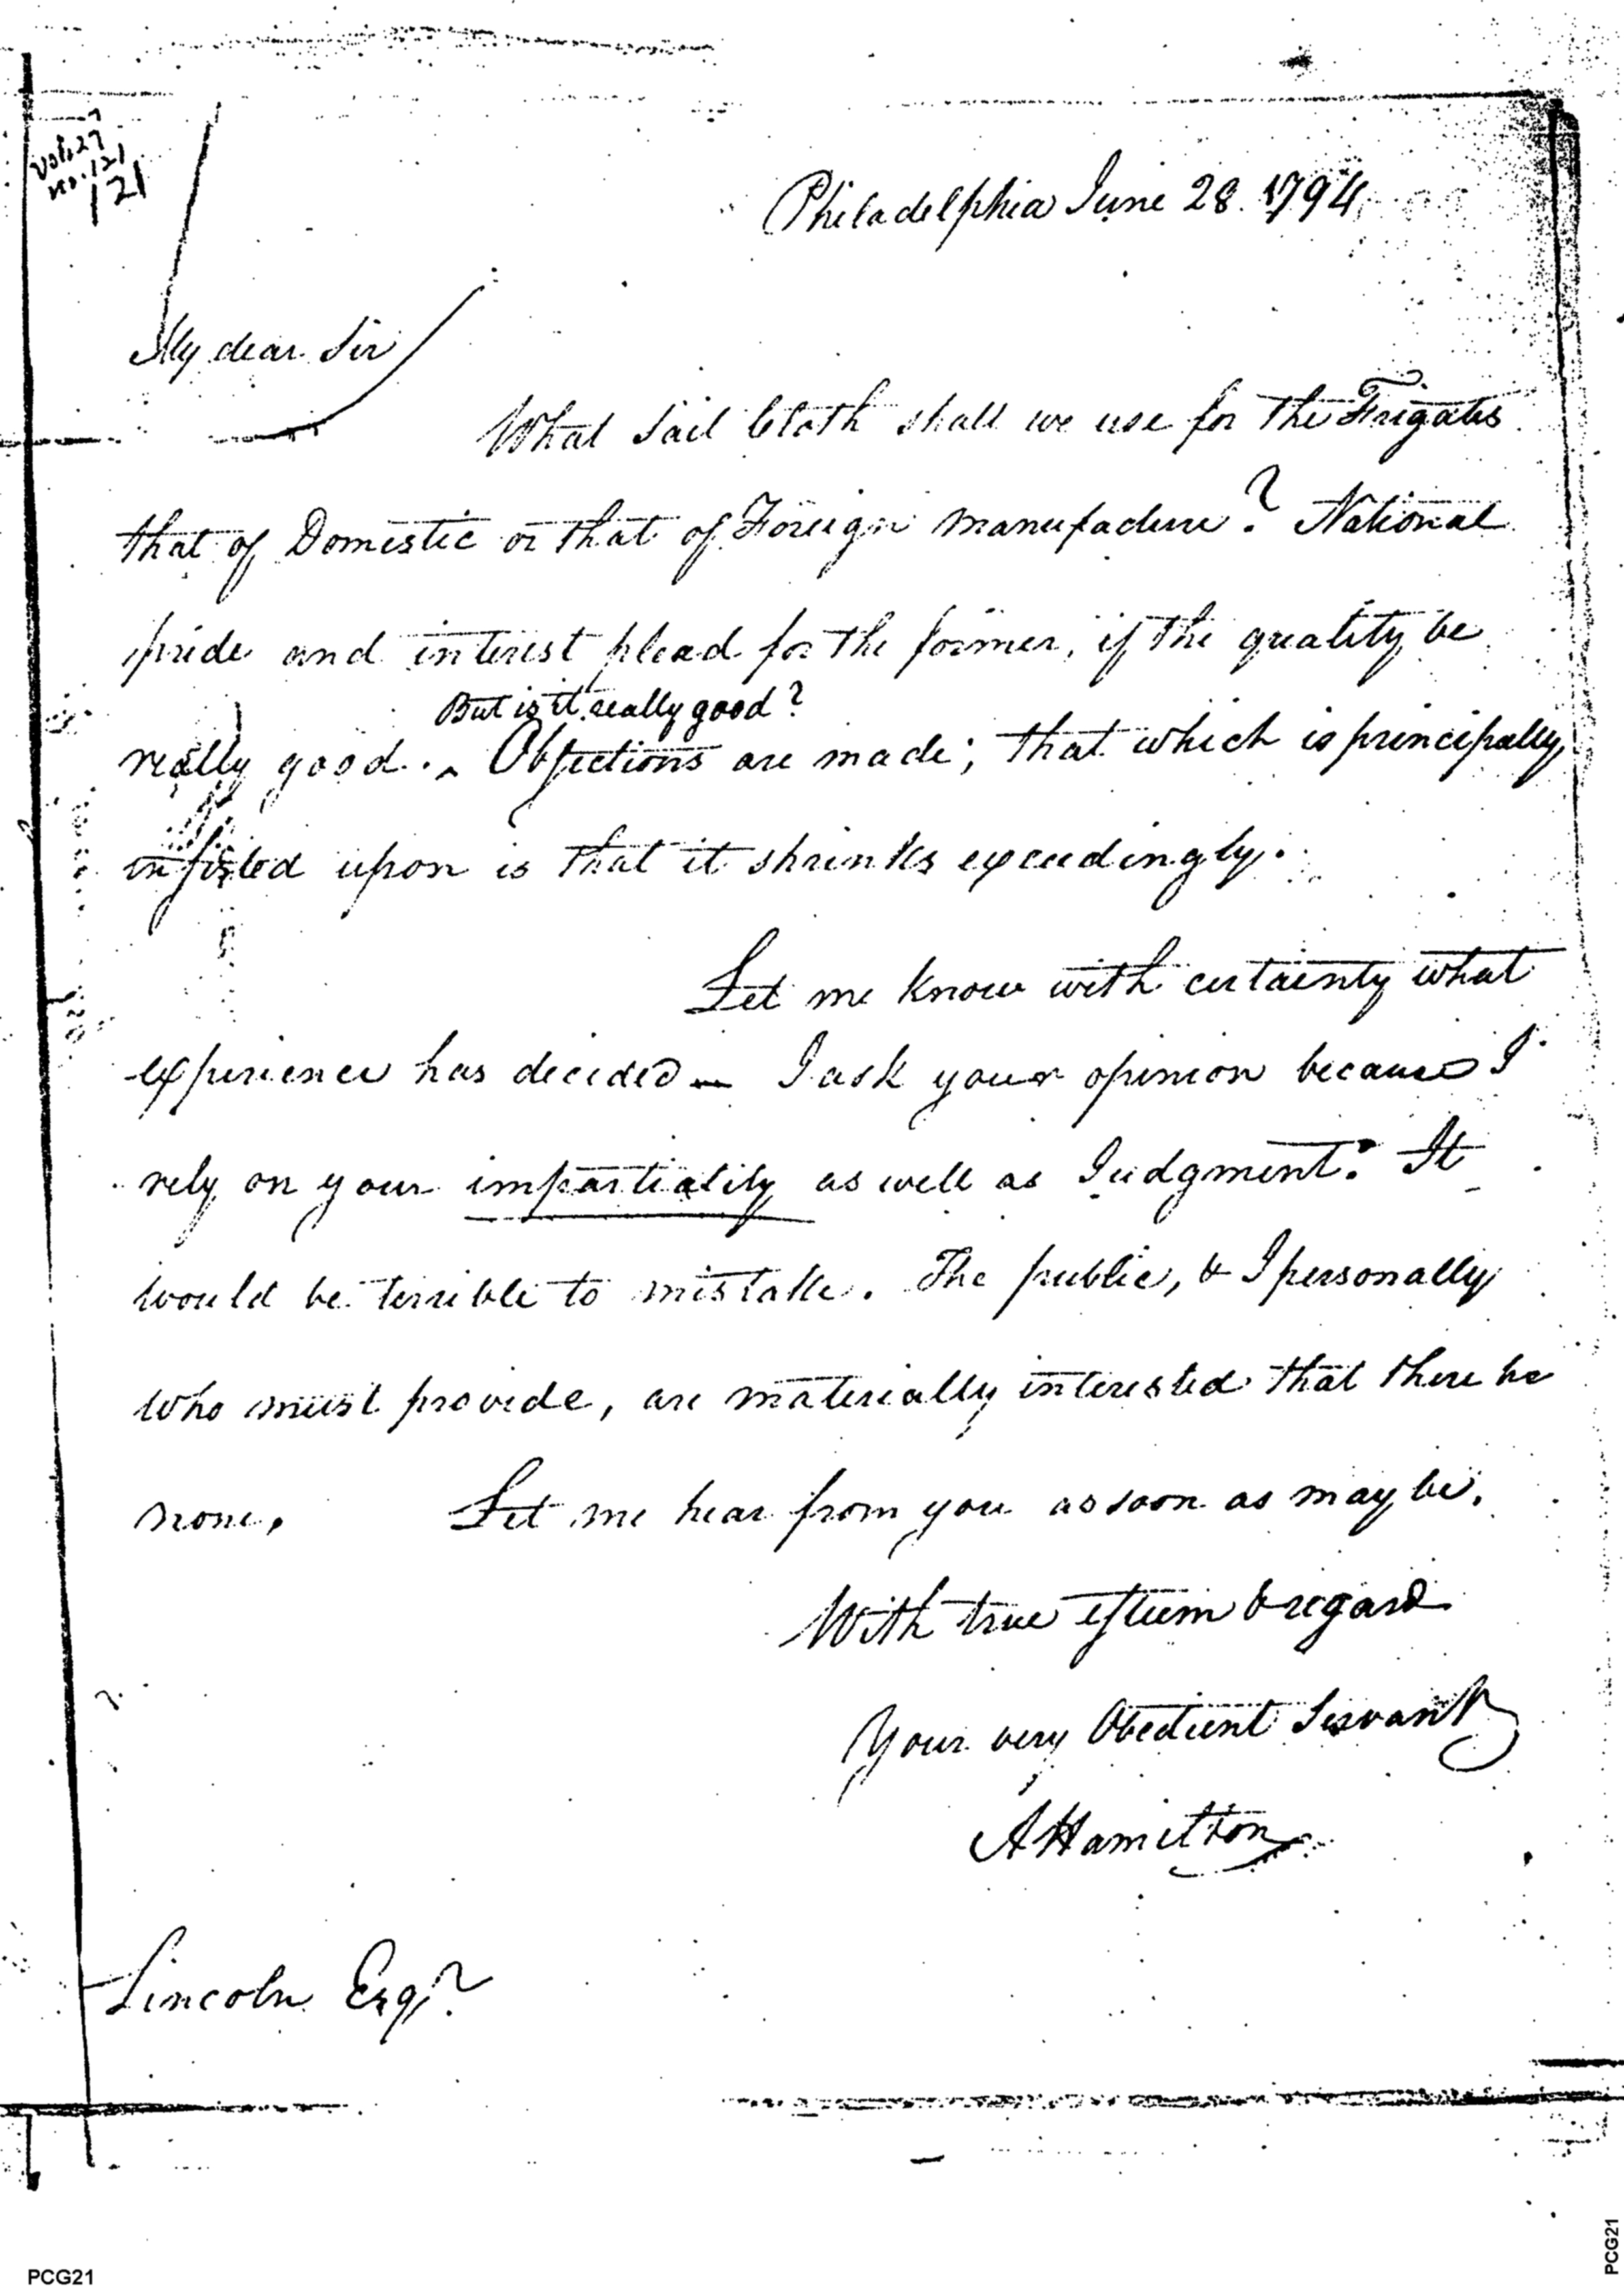 vol. 27
no. 121
121
Philadelphia June 28. 1794
My dear Sir
What Sail Cloth shall we use for the Frigates
that of Domestic or that of Foreign manufacture? National
pride and interest plead for the former, if the quality be
But is it really good?
really good. ^ Objections are made; that which is principally
insisted upon is that it shrinks exceedingly.
Let me know with certainty what
experience has decided — I ask your opinion because I
rely on your impartiality as well as Judgment. It
would be terrible to mistake. The public, & I personally
who must provide, are materially interested that there be
none. Let me hear from you as soon as may be.
With true esteem & regard
Your very Obedient Servant
A Hamilton
Lincoln Esqr.
PCG21
PCG21